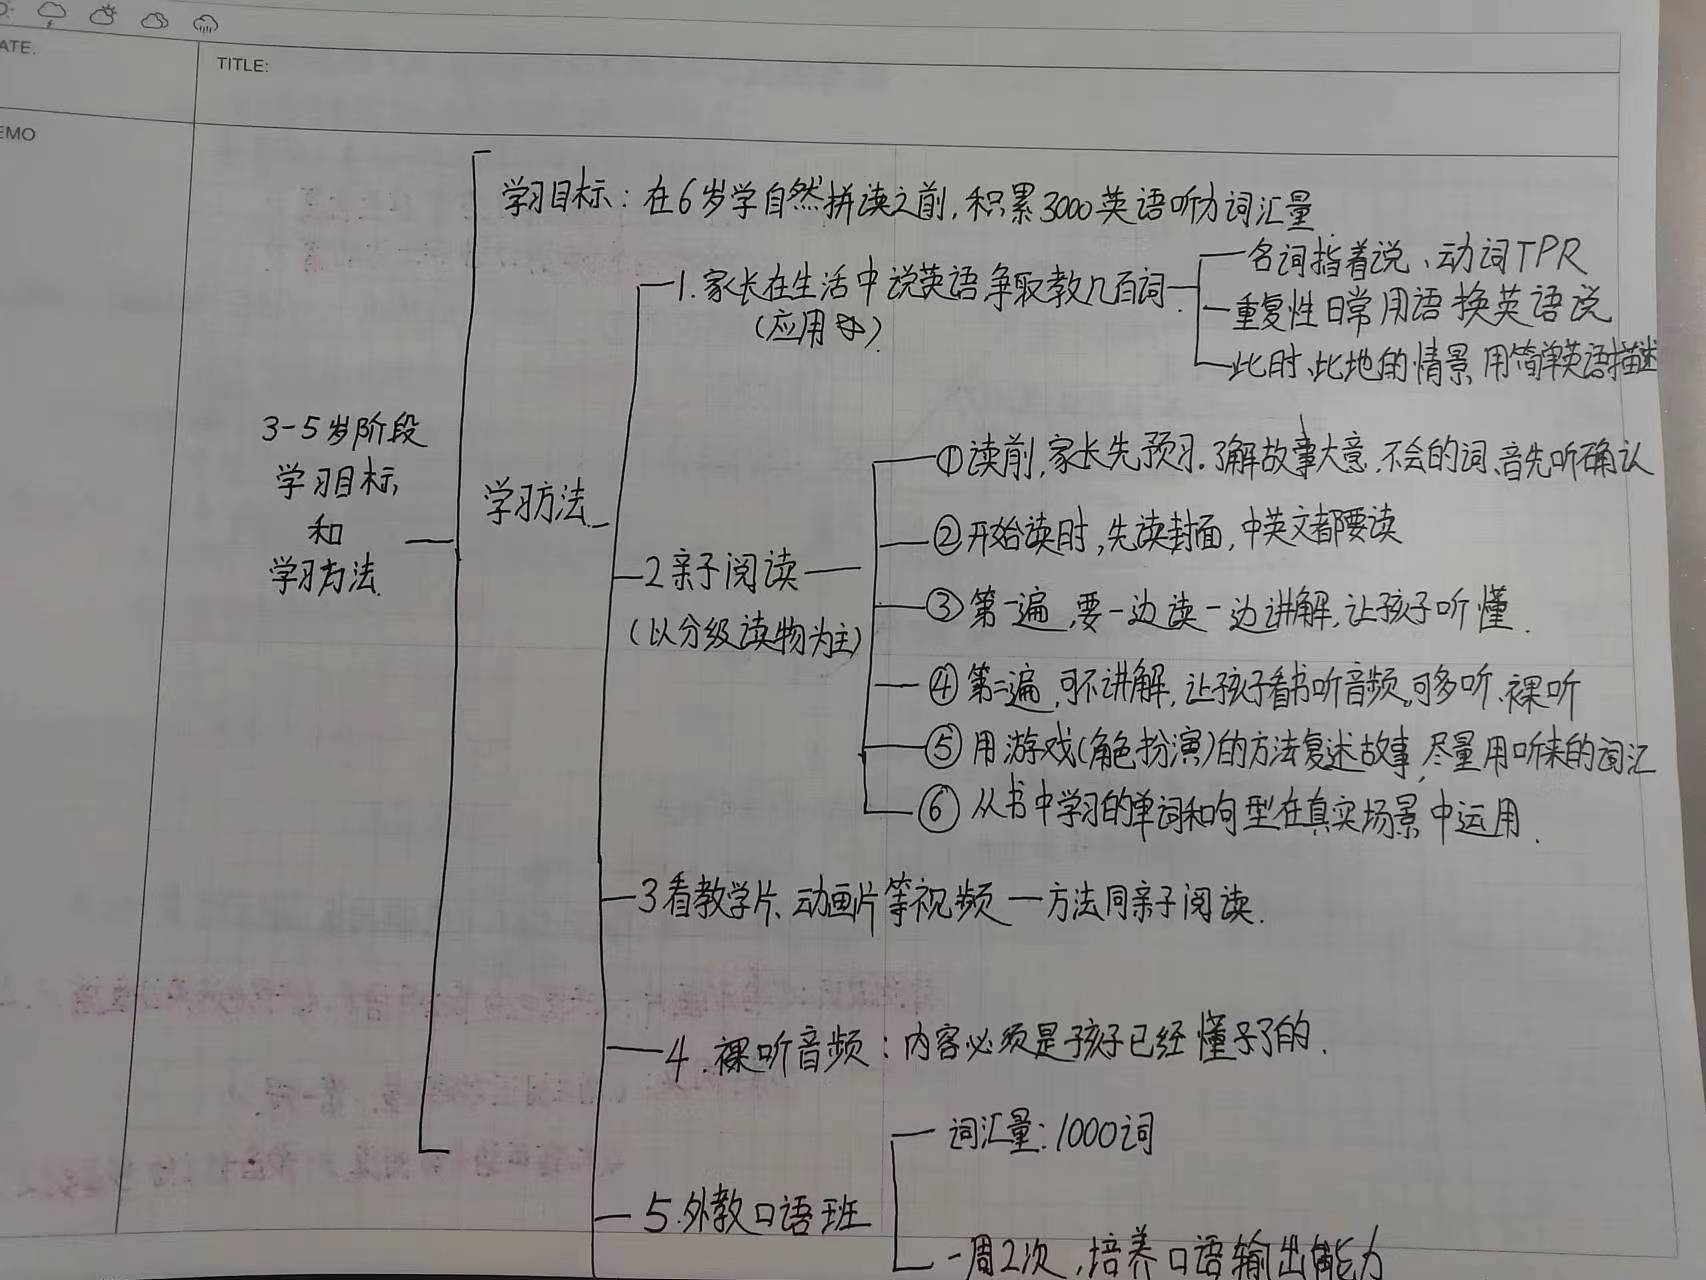 ATE.
TITLE:
EMO
3-5岁阶段
学习目标
和
学习方法
学习目标：在6岁学自然拼读之前，积累3000英语听力词汇量
学习方法
1.家长在生活中说英语争取教几百词
(应用中)
名词指着说、动词TPR
重复性日常用语换英语说
此时、此地的情景用简单英语描述
2亲子阅读
(以分级读物为主)
①读前，家长先预习.了解故事大意.不会的词、音先听确认
②开始读时，先读封面，中英文都要读
③第一遍，要一边读一边讲解，让孩子听懂.
④第二遍，可不讲解，让孩子看书听音频。可多听、裸听
⑤用游戏(角色扮演)的方法复述故事，尽量用听来的词汇
⑥从书中学习的单词和句型在真实场景中运用.
3看教学片、动画片等视频一方法同亲子阅读.
4.裸听音频：内容必须是孩子已经懂了的.
5.外教口语班
词汇量：1000词
一周2次，培养口语输出能力